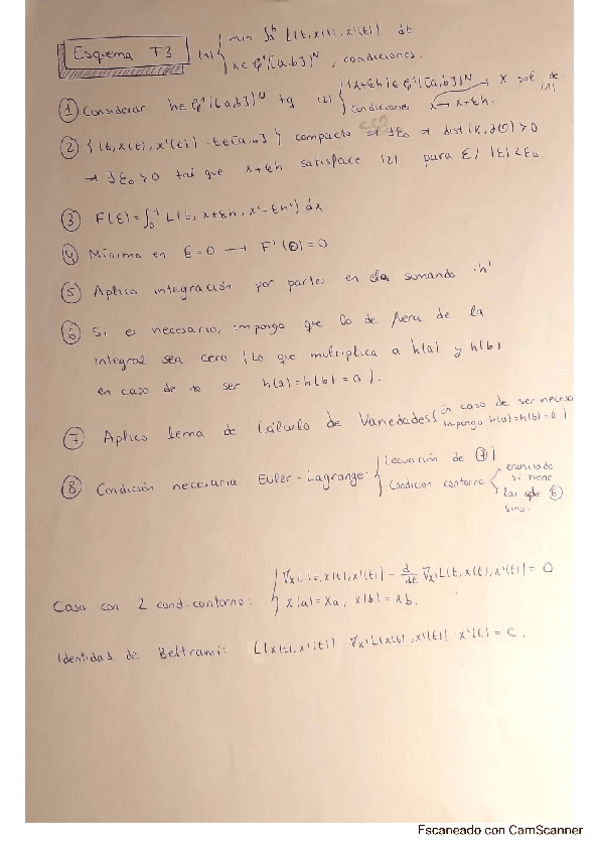 Esquema T3 (1) { min ∫ₐᵇ L(t, x(t), x'(t)) dt
x ∈ C¹([a,b])ᴺ, condiciones.
① Considerar h ∈ C¹([a,b])ᴺ tq (2) { (x+εh) ∈ C¹([a,b])ᴺ x sol de (1)
condiciones x → x+εh.
② {(t, x(t), x'(t)) : t∈[a,b]} compacto ⇒ dist(K, ∂Ω) > 0
→ ∃ε₀ > 0 tal que x+εh satisface (2) para ε / |ε| < ε₀.
③ F(ε) = ∫ L(t, x+εh, x'+εh') dx
④ Mínimo en ε = 0 → F'(0) = 0
⑤ Aplico integración por partes en el sumando ·h'
⑥ Si es necesario, impongo que lo de fuera de la
integral sea cero (Lo que multiplica a h(a) y h(b)
en caso de no ser h(a) = h(b) = 0).
⑦ Aplico lema de Cálculo de Variedades (en caso de ser necesa
impongo h(a)=h(b)=0)
⑧ Condición necesaria Euler-Lagrange { (ecuación de ⑦)
Condición contorno < enunciado si tiene
las de ⑥ sino.
Caso con 2 cond. contorno: { ∇ₓL(t, x(t), x'(t)) − d/dt ∇ₓ'L(t, x(t), x'(t)) = 0
x(a) = xa, x(b) = xb.
Identidad de Beltrami: L(x(t), x'(t)) − ∇ₓ'L(x(t), x'(t)) · x'(t) = c.
Escaneado con CamScanner